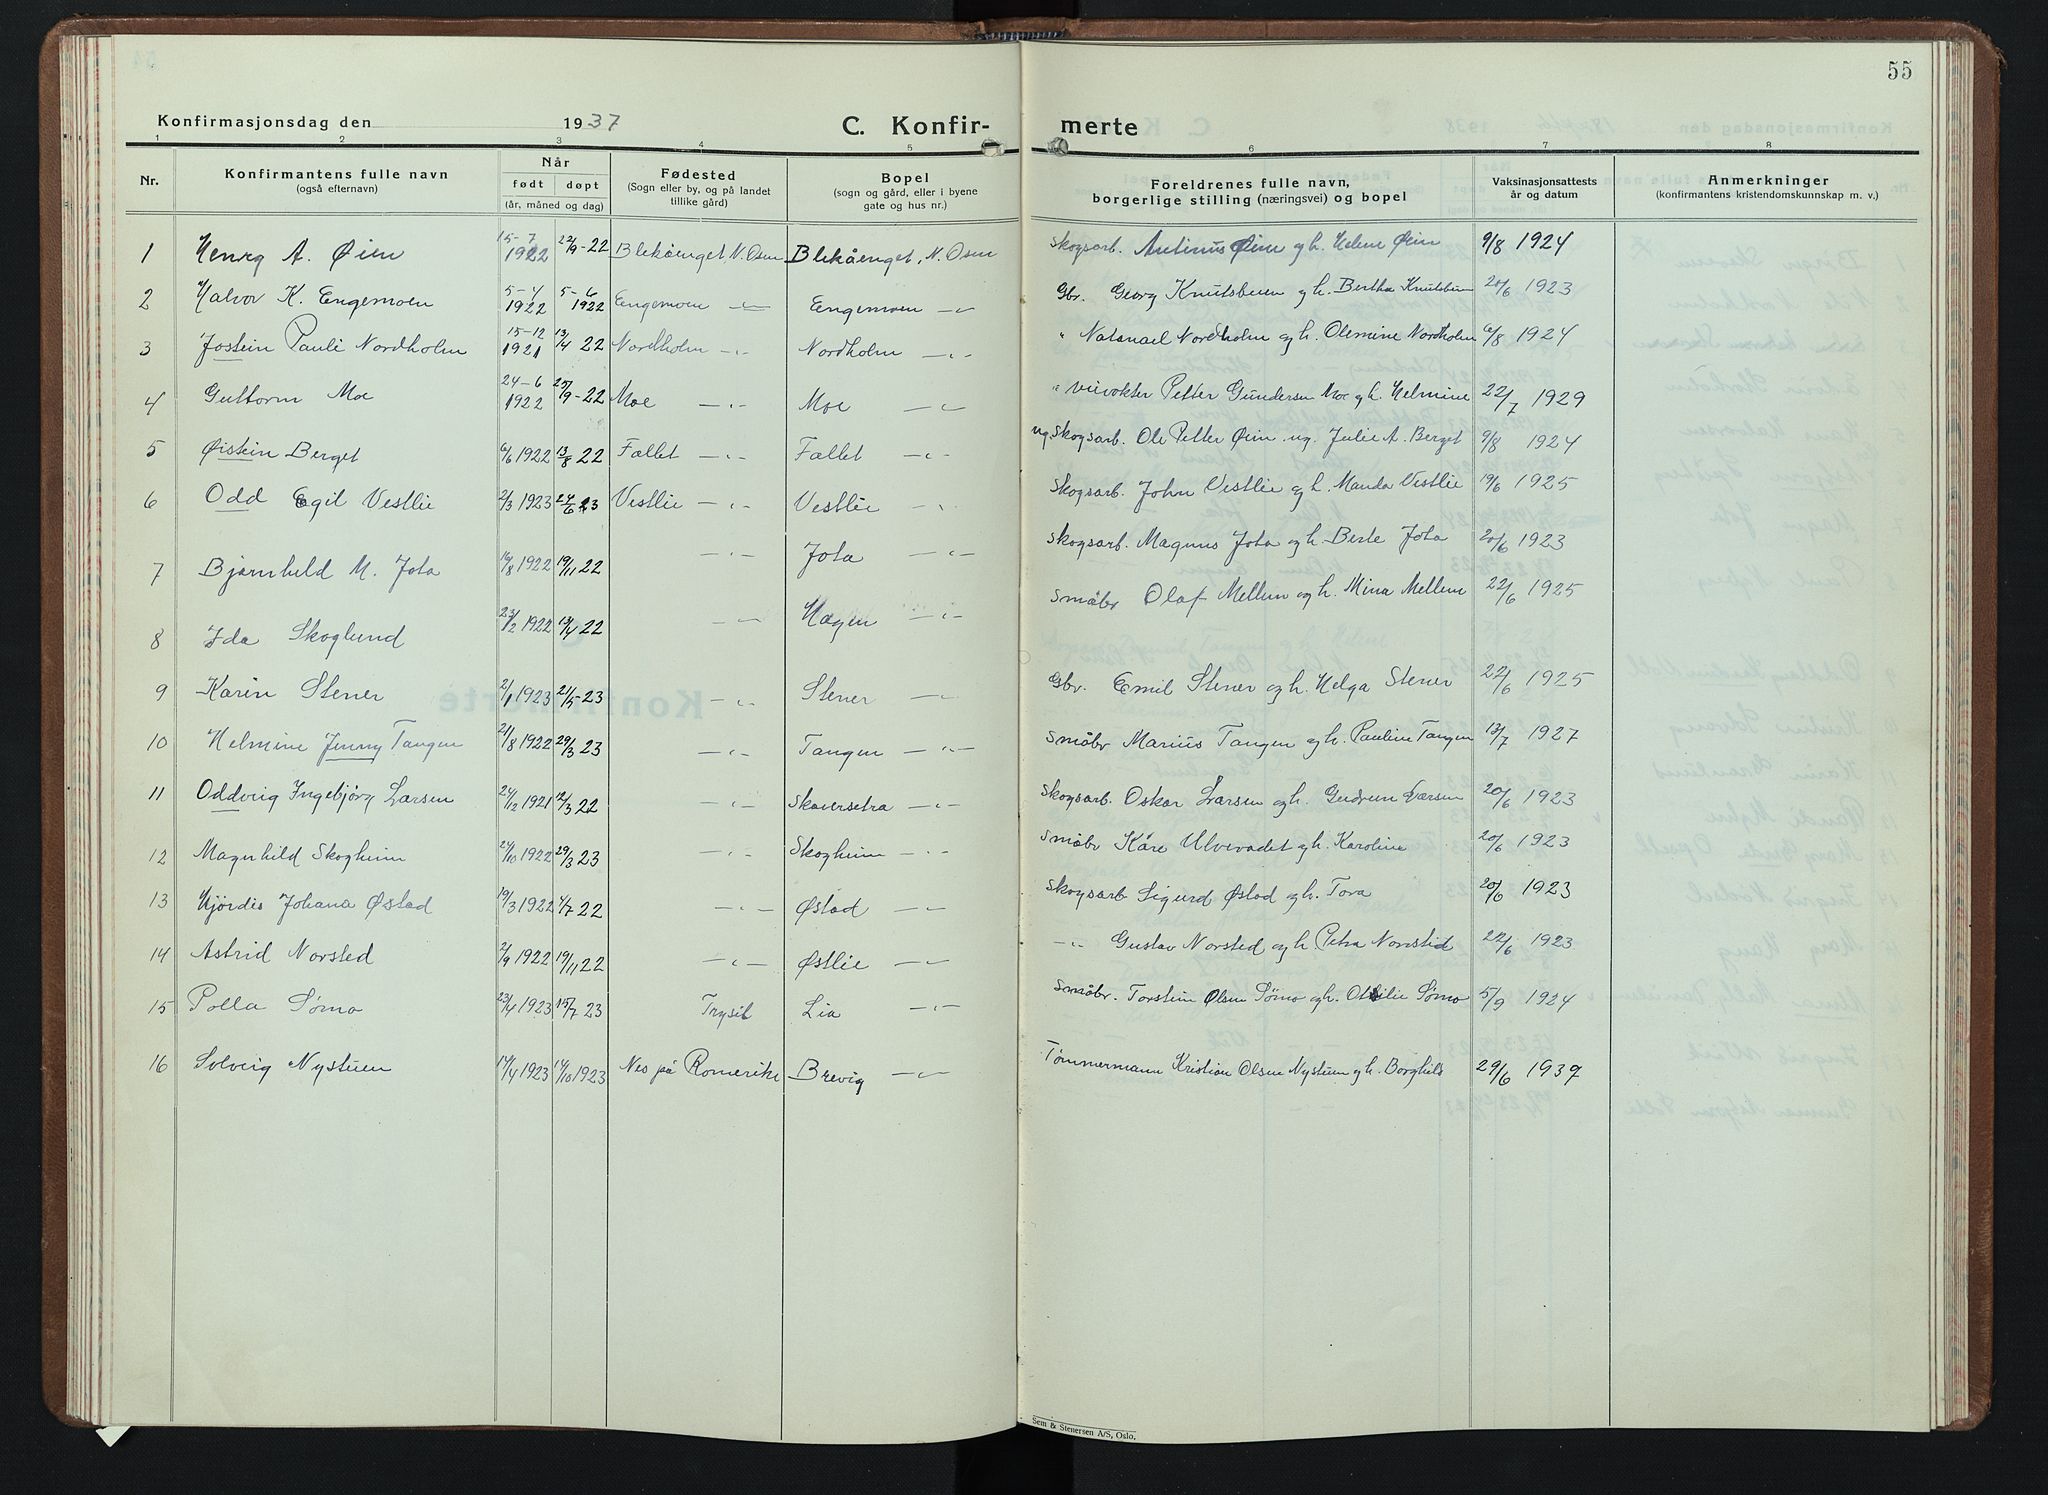 55
Konfirmasjonsdag den 1937
C. Konfir- merte
1 2 3 4 5 6 7 8
Nr.
Konfirmantens fulle navn
(også efternavn)
Når
født døpt
(år, måned og dag)
Fødested
(Sogn eller by, og på landet
tillike gård)
Bopel
(sogn og gård, eller i byene
gate og hus nr.)
Foreldrenes fulle navn,
borgerlige stilling (næringsvei) og bopel
Vaksinasjonsattests
år og datum
Anmerkninger
(konfirmantens kristendomskunnskap m. v.)
1 Henrg A. Øien 15-7 1922 22/9-22 Blikåenget, N. Osen Blikåenget, N. Osen Skogsarb. Antinus Øien og h. Helene Øien 9/8 1924
2 Halvor K. Engemoen 5-4 1922 5-6 1922 Engemoen -"- Engemoen -"- Gbr. Georg Knutsbuen og h. Bertha Knutsbuen 20/6 1923
3 Jostein Pauli Nordholm 15-12 1921 13/4 22 Nordholm -"- Nordholm -"- " Natanael Nordholm og h. Olemine Nordholm 6/8 1924
4 Guttorm Moe 24-6 1922 25/9-22 Moe -"- Moe -"- Petter Gundersen Moe og h. Helmine 22/7 1929
5 Øistein Berget 6/6 1922 13/8 22 Fallet -"- Fallet -"- ug. Skogsarb. Ole Petter Øien ug. Julie A. Berget 9/8 1924
6 Odd Egil Vestlie 2/3 1923 24/6 23 Vestlie -"- Vestlie -"- Skogsarb. John Vestlie og h. Manda Vestlie 19/6 1925
7 Bjarnhild M. Jota 16/8 1922 19/11 22 -"- Jota -"- Skogsarb. Magnus Jota og h. Berte Jota 20/6 1923
8 Ida Skoglund 23/2 1922 13/4 22 -"- Hagen -"- Småbr Olaf Mellum og h. Mina Mellem 22/6 1925
9 Karin Stener 2/1 1923 21/5-23 -"- Stener -"- Gbr. Emil Stener og h. Helga Stener 22/6 1925
10 Helmine Jenny Tangen 21/8 1922 29/3 23 -"- Tangen -"- Småbr Marius Tangen og h. Pauline Tangen 13/7 1927
11 Oddveig Ingebjørg Larsen 24/12 1921 12/3 22 -"- Skaversetra -"- Skogsarb. Oskar Larsen og h. Gudrun Larsen 20/6 1923
12 Magnhild Skogheim 24/10 1922 29/3 23 -"- Skogheim -"- Småbr Kåre Ulvevadet og h. Karoline 20/6 1923
13 Hjørdis Johana Østad 19/3 1922 4/7 22 -"- Østad -"- Skogsarb Sigurd Østad og h. Tora 20/6 1923
14 Astrid Norsted 2/9 1922 19/11 22 -"- Østlie -"- -"- Gustav Norsted og h Petra Norsted 22/6 1923
15 Polla Sørmo 23/4 1923 15/7 23 Trysil Lia -"- Småbr. Torstein Olsen Sørmo og h. Otilie Sørmo 5/9 1924
16 Solveig Nystuen 14/4 1923 14/10 1923 Nes på Romerike Brevig -"- Tømmermann Kristian Olsen Nystuen og h. Borghild 29/6 1937
Sem & Stenersen A/S, Oslo.